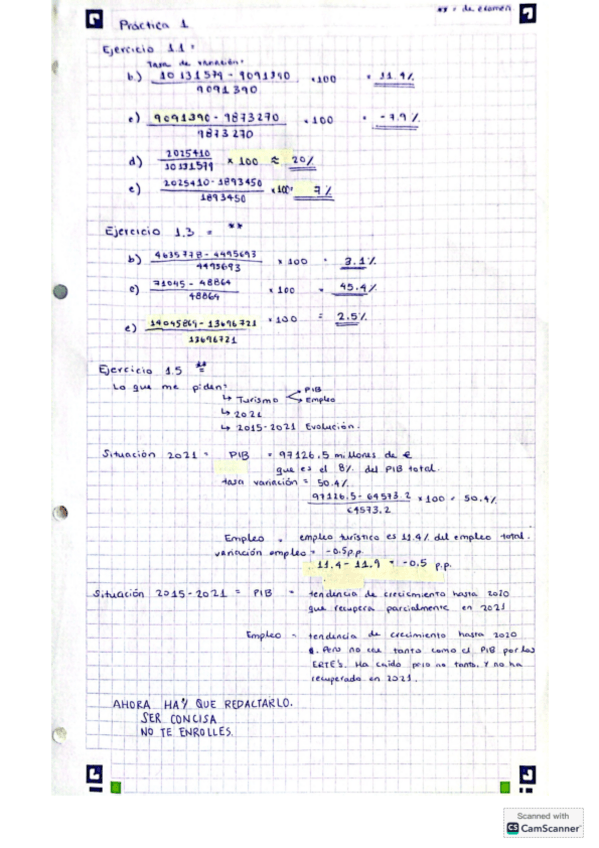 ** = de examen
Práctica 1
Ejercicio 1.1 =
Tasa de variación:
b.) 10131579 - 9091390 / 9091390 ×100 = 11.4%
c) 9091390 - 9873270 / 9873270 ×100 = -7.9%
d) 2025410 / 10131579 × 100 ≈ 20%
e) 2025410 - 1893450 / 1893450 ×100 = 7%
Ejercicio 1.3 = **
b) 4635778 - 4495693 / 4495693 × 100 = 3.1%
c) 71045 - 48864 / 48864 × 100 = 45.4%
e) 14045869 - 13696721 / 13696721 ×100 = 2.5%
Ejercicio 1.5 **
Lo que me piden:
↳ Turismo PIB
Empleo
↳ 2021
↳ 2015-2021 Evolución.
Situación 2021 = PIB = 97126,5 millones de €
que es el 8% del PIB total.
tasa variación = 50.4%
97126.5 - 64573.2 / 64573.2 ×100 = 50.4%
Empleo = empleo turístico es 11.4% del empleo total.
variación empleo = -0.5 p.p.
11.4 - 11.9 = -0.5 p.p.
Situación 2015-2021 = PIB = tendencia de crecimiento hasta 2020
que recupera parcialmente en 2021
Empleo = tendencia de crecimiento hasta 2020
Pero no cae tanto como el PIB por los
ERTE's. Ha caído pero no tanto. Y no ha
recuperado en 2021.
AHORA HAY QUE REDACTARLO.
SER CONCISA
NO TE ENROLLES.
Scanned with
CS CamScanner